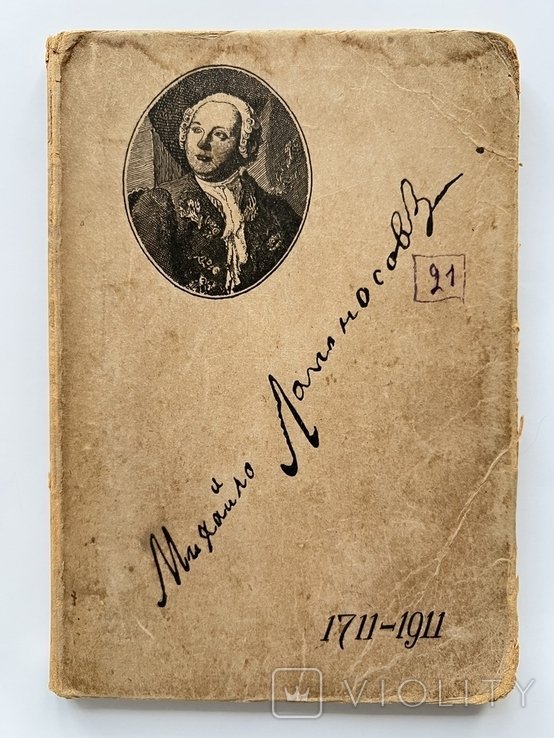 Михайло Ломоносовъ
21
1711-1911
VIOLITY